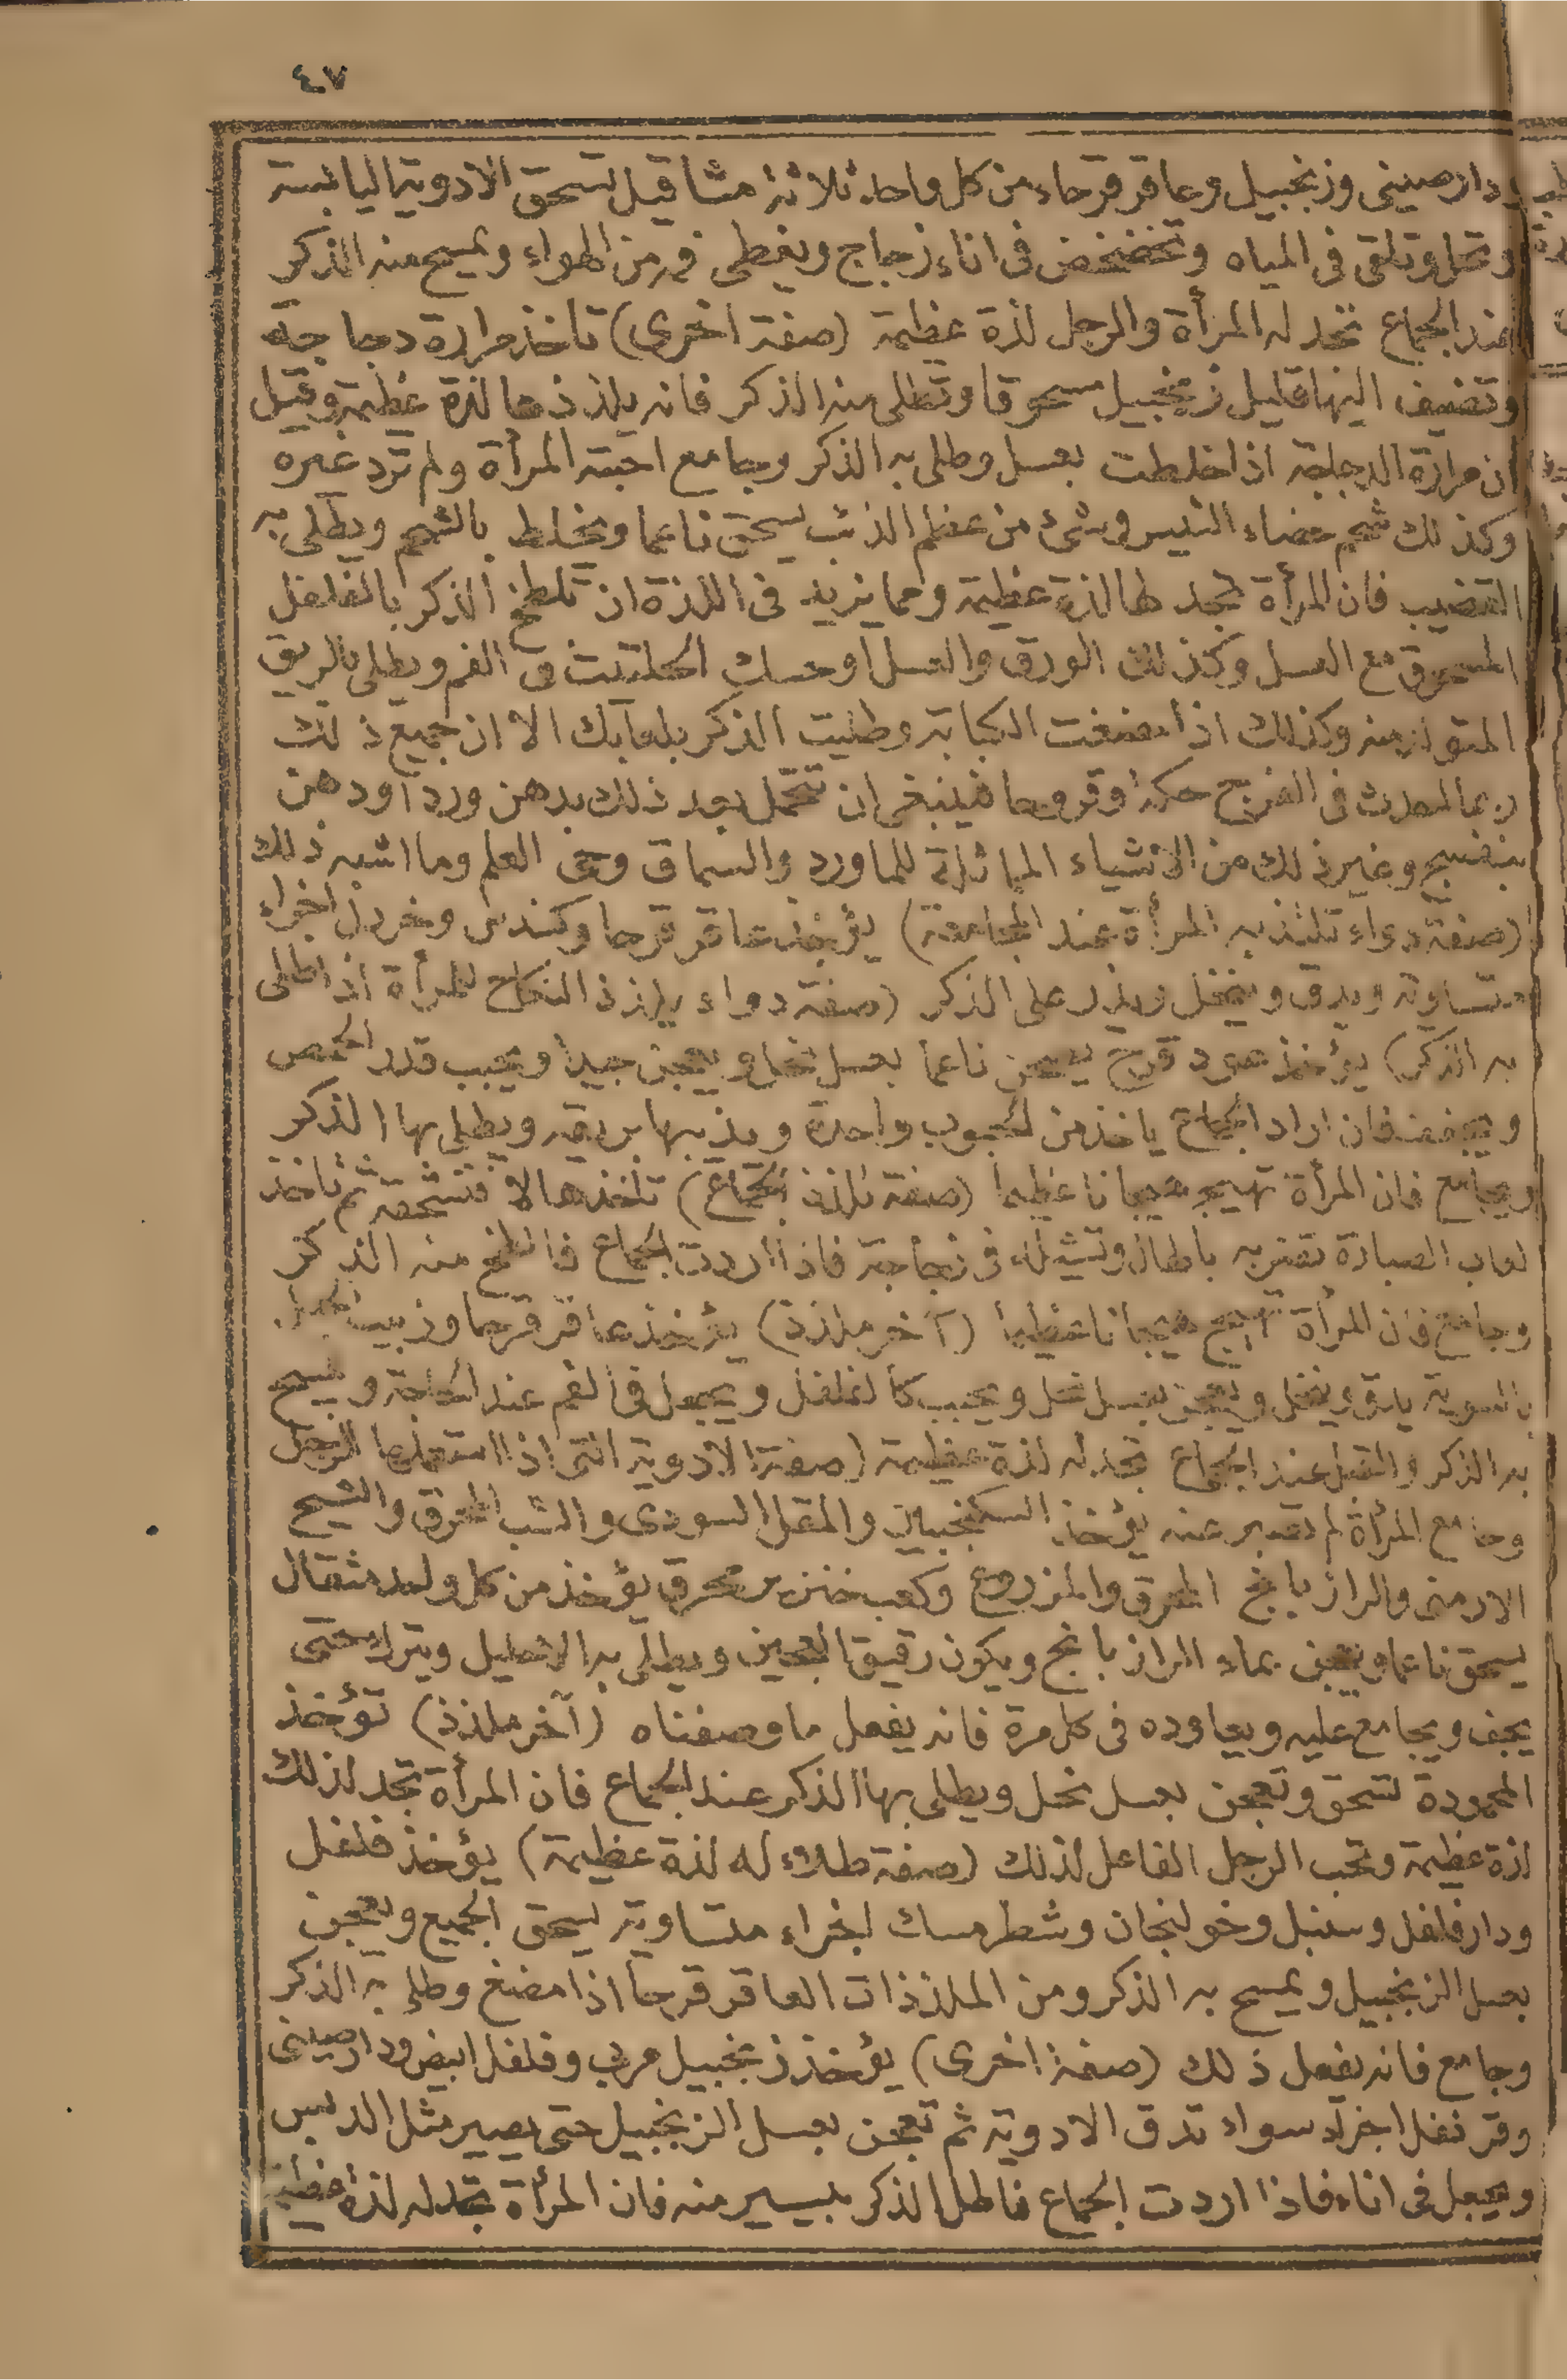 ٤٧
دارصينى وزنجبيل وعاقر قرحاء من كل واحد ثلاثة مثاقيل تسحق الادوية اليابسة
وتحل وتلقى فى المياه وتخضخض فى اناء زجاج ويغطى فمه من الهواء ويمسح منه الذكر
عند الجماع تجد له المرأة والرجل لذة عظيمة (صفة اخرى) تاخذ مرارة دجاجة
وتضيف اليها قليل زنجبيل مسحوقا وتطلى منه الذكر فانه يلذذها لذة عظيمة وقيل
ان مرارة الدجاجة اذا خلطت بعسل وطلى به الذكر وجامع احبته المرأة ولم ترد غيره
وكذلك شحم خصاء التيس وشئ من عظم الذئب يسحق ناعما ويخلط بالشحم ويطلى به
القضيب فان المرأة تجد لها لذة عظيمة ومما يزيد فى اللذة ان تلطخ الذكر بالفلفل
المسحوق مع العسل وكذلك الورق والعسل او مسك الحلتيت فى الفم ويطلى بالريق
المتولد منه وكذلك اذا مضغت الكبابة وطليت الذكر بلعابك الا ان جميع ذلك
ربما احدث فى الفرج حكة وقروحا فينبغى ان تتحمل بعد ذلك بدهن ورد اودهن
بنفسج وغير ذلك من الاشياء المماثلة للماورد والسماق وحى العلم وما اشبه ذلك
(صفة دواء تلتذ به المرأة عند المجامعة) يؤخذ عاقر قرحا وكندس وخردل اجزاء
متساوية ويدق وينخل ويذر على الذكر (صفة دواء يلذذ النكاح للمرأة اذا طلى
به الذكر) يؤخذ عود قرح يعجن ناعما بعسل نحل ويعجن جيدا ويحبب قدر الحمص
ويجفف فان اراد الجماع ياخذ من الحبوب واحدة ويذيبها بريقه ويطلى بها الذكر
ويجامع فان المرأة تهيج هيجانا عظيما (صفة تلذذ الجماع) تاخذ هالا فتسحقه ثم تاخذ
لعاب الصبارة تضربه بالهال وتشيله فى زجاجة فاذا اردت الجماع فالطخ منه الذكر
وجامع فان المرأة تهيج هيجانا عظيما (آخر ملذذ) يؤخذ عاقر قرحا وزبيب الجبل
بالسوية يدق وينخل ويعجن بعسل نحل ويحبب كالفلفل ويجعل فى الفم عند الحاجة ويمسح
به الذكر والتفل عند الجماع تجد له لذة عظيمة (صفة الادوية التى اذا استعملها الرجل
وجامع المرأة لم تصبر عنه يؤخذ السكنجبيان والمقل السودى والشب المحرق والشيح
الارمنى والرازيانج المحرق والمزروع وكعب خنزير محرق يؤخذ من كل واحد مثقال
يسحق ناعما ويعجن بماء الرازيانج ويكون رقيق العجين ويطلى به الاحليل ويترك حتى
يجف ويجامع عليه ويعاوده فى كل مرة فانه يفعل ما وصفناه (آخر ملذذ) تؤخذ
المحمودة تسحق وتعجن بعسل نحل ويطلى بها الذكر عند الجماع فان المرأة تجد لذلك
لذة عظيمة وتحب الرجل الفاعل لذلك (صفة طلاء له لذة عظيمة) يؤخذ فلفل
ودارفلفل وسنبل وخولنجان وشطر مسك اجزاء متساوية يسحق الجميع ويعجن
بعسل الزنجبيل ويمسح به الذكر ومن الملذذات العاقر قرحا اذا مضغ وطلى به الذكر
وجامع فانه يفعل ذلك (صفة اخرى) يؤخذ زنجبيل مربى وفلفل ابيض ودارصينى
وقرنفل اجزاء سواء تدق الادوية ثم تعجن بعسل الزنجبيل حتى يصير مثل الدبس
ويجعل فى اناء فاذا اردت الجماع فاطل الذكر بيسير منه فان المرأة تجد له لذة عظيمة